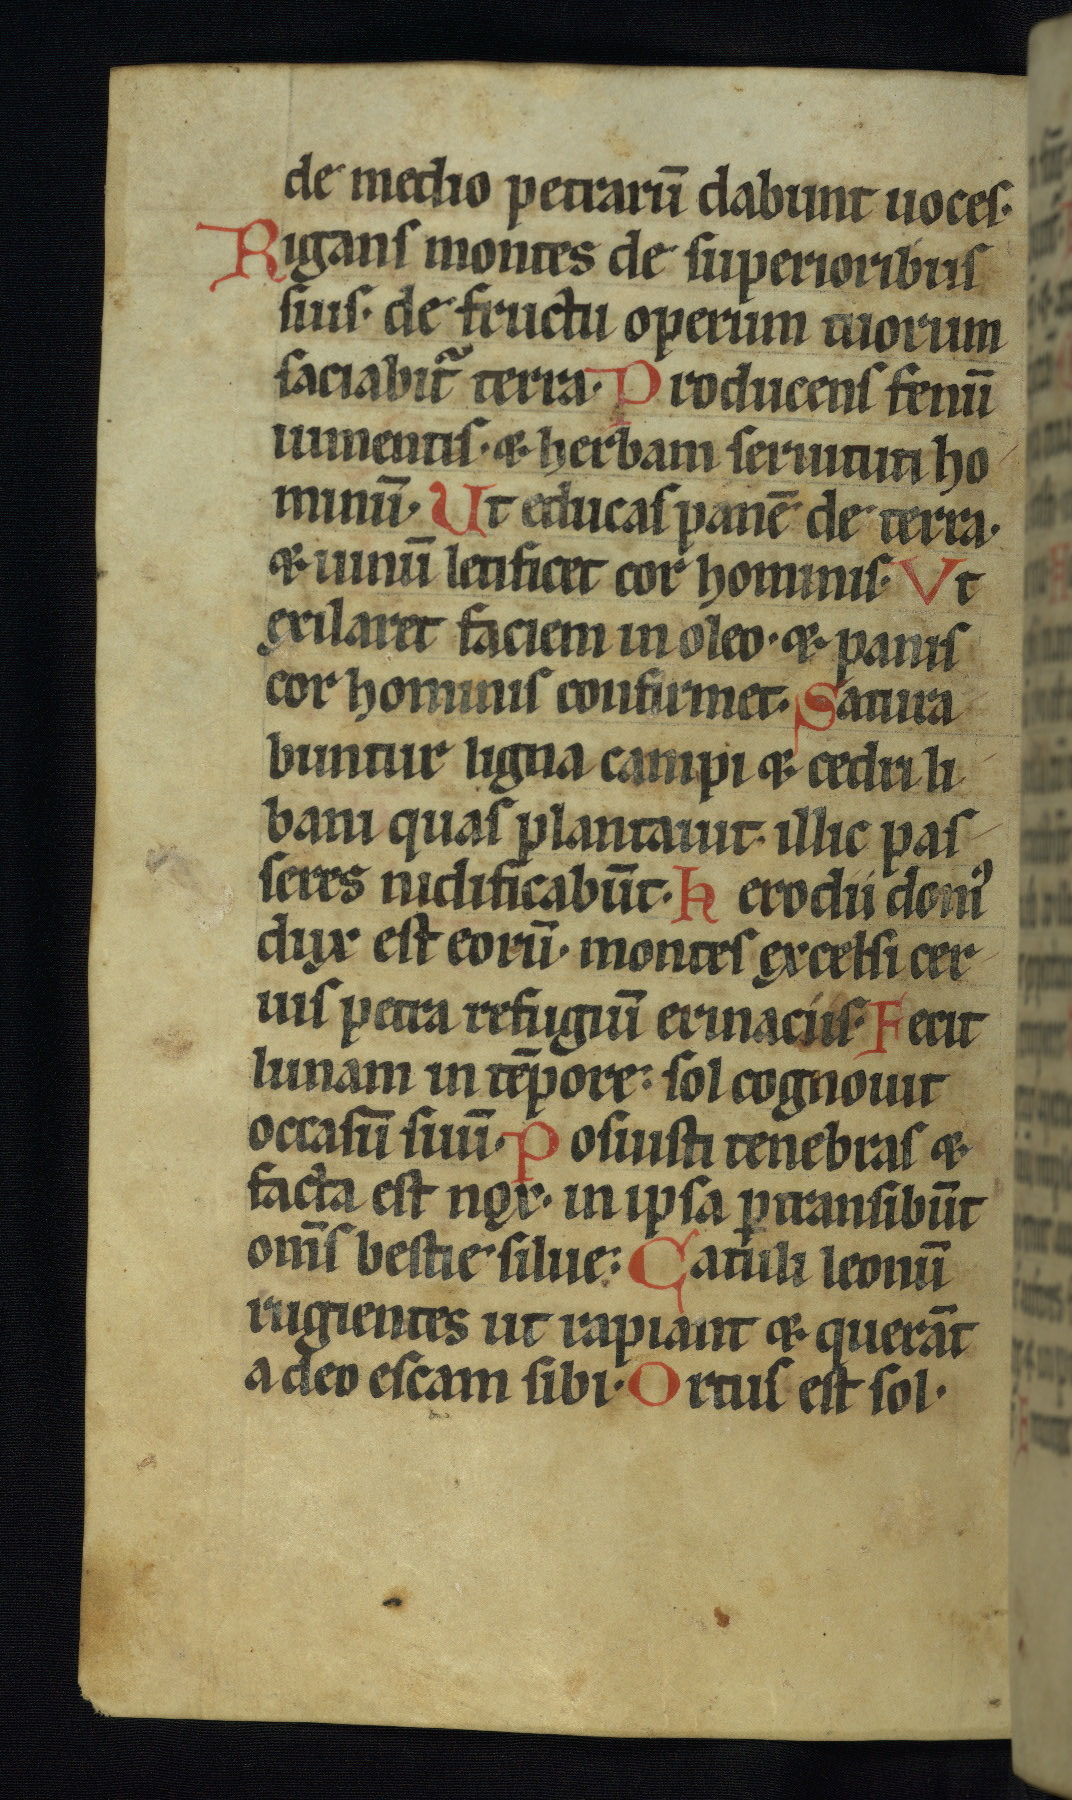 de medio petrarū dabunt uoces·
Rigans montes de superioribus
suis· de fructu operum tuorum
saciabit᷑ terra· Producens fenū
iumentis· & herbam seruituti ho
minū· Ut educas panē de terra·
& uinū letificet cor hominis· Vt
exilaret faciem in oleo· & panis
cor hominis confirmet· Satura
buntur ligna campi & cedri li
bani quas plantauit· illic pas
seres nidificabūt· herodii domꝰ
dux est eorū· montes excelsi cer
uis petra refugiū erinaciis· Fecit
lunam in tēpore: sol cognouit
occasū suū· Posuisti tenebras &
facta est nox· in ipsa ꝑtransibūt
om̄s bestie silue: Catuli leonū
rugientes ut rapiant & querāt
a deo escam sibi· Ortus est sol·